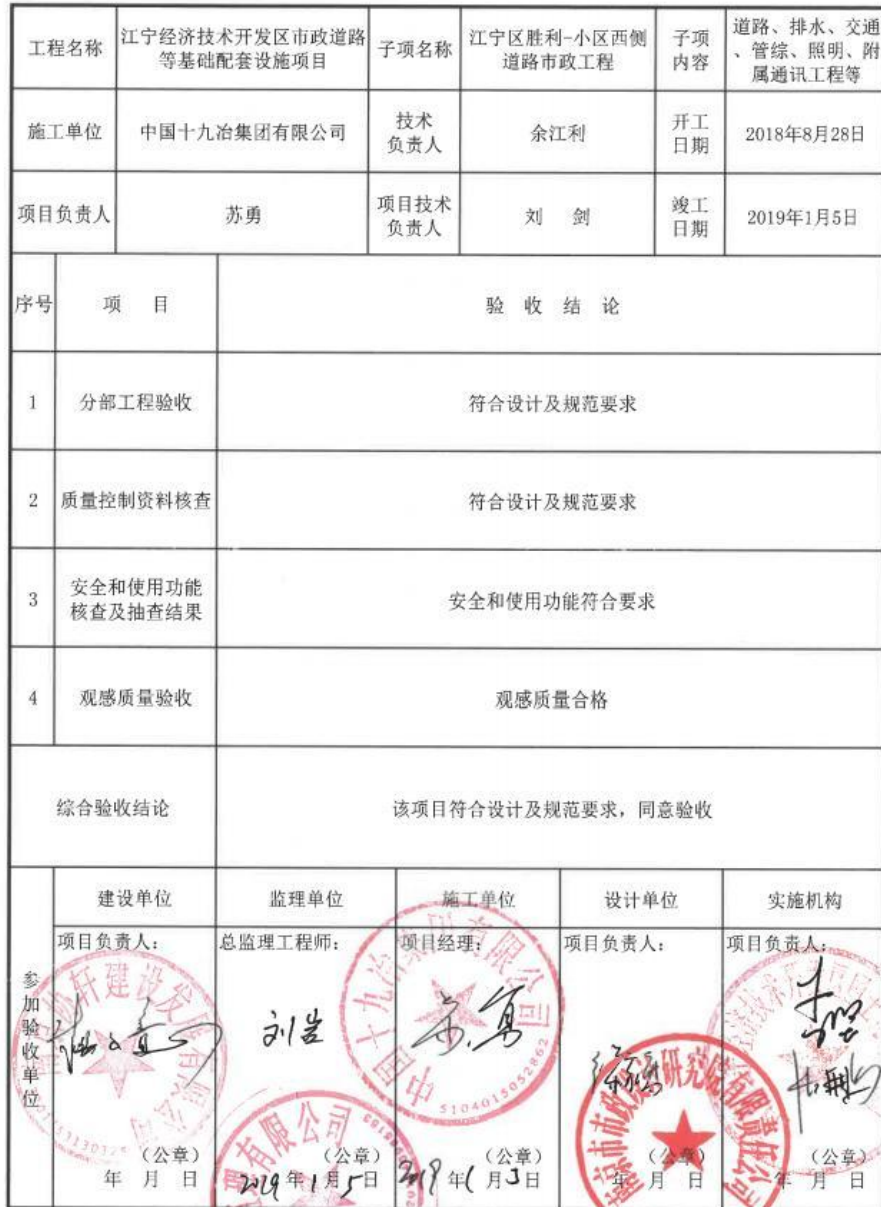 工程名称
江宁经济技术开发区市政道路
等基础配套设施项目
子项名称
江宁区胜利-小区西侧
道路市政工程
子项
内容
道路、排水、交通
、管综、照明、附
属通讯工程等
施工单位
中国十九冶集团有限公司
技术
负责人
余江利
开工
日期
2018年8月28日
项目负责人
苏勇
项目技术
负责人
刘 剑
竣工
日期
2019年1月5日
序号
项 目
验 收 结 论
1
分部工程验收
符合设计及规范要求
2
质量控制资料核查
符合设计及规范要求
3
安全和使用功能
核查及抽查结果
安全和使用功能符合要求
4
观感质量验收
观感质量合格
综合验收结论
该项目符合设计及规范要求，同意验收
参加验收单位
建设单位
监理单位
施工单位
设计单位
实施机构
项目负责人：
总监理工程师：
项目经理：
项目负责人：
项目负责人：
苏勇
中国十九冶集团有限公司
5104015052862
理有限公司
研究院有限责任公司
（公章）
年 月 日
（公章）
2019年1月5日
（公章）
年 月 日
（公章）
年 月 日